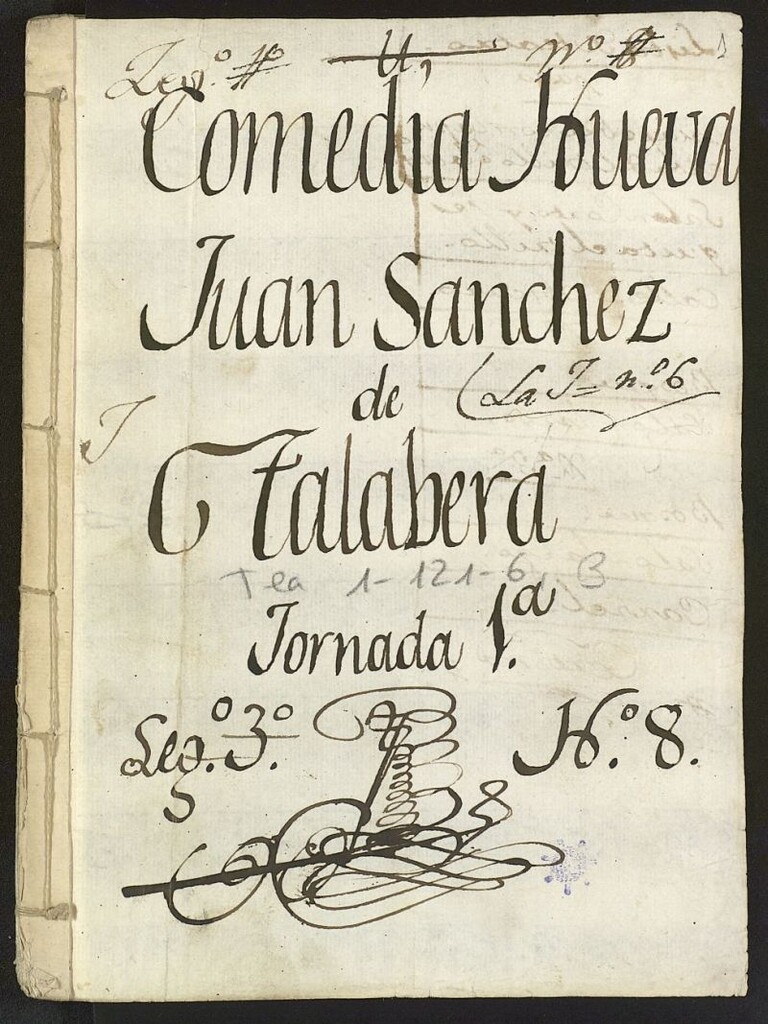 Leg.º
U,
nº
Comedia Nueva
Juan Sanchez
de
La J= n.º 6
J
Talabera
Tea 1-121-6, B
Jornada 1.ª
Leg.º 3.º
N.º 8.